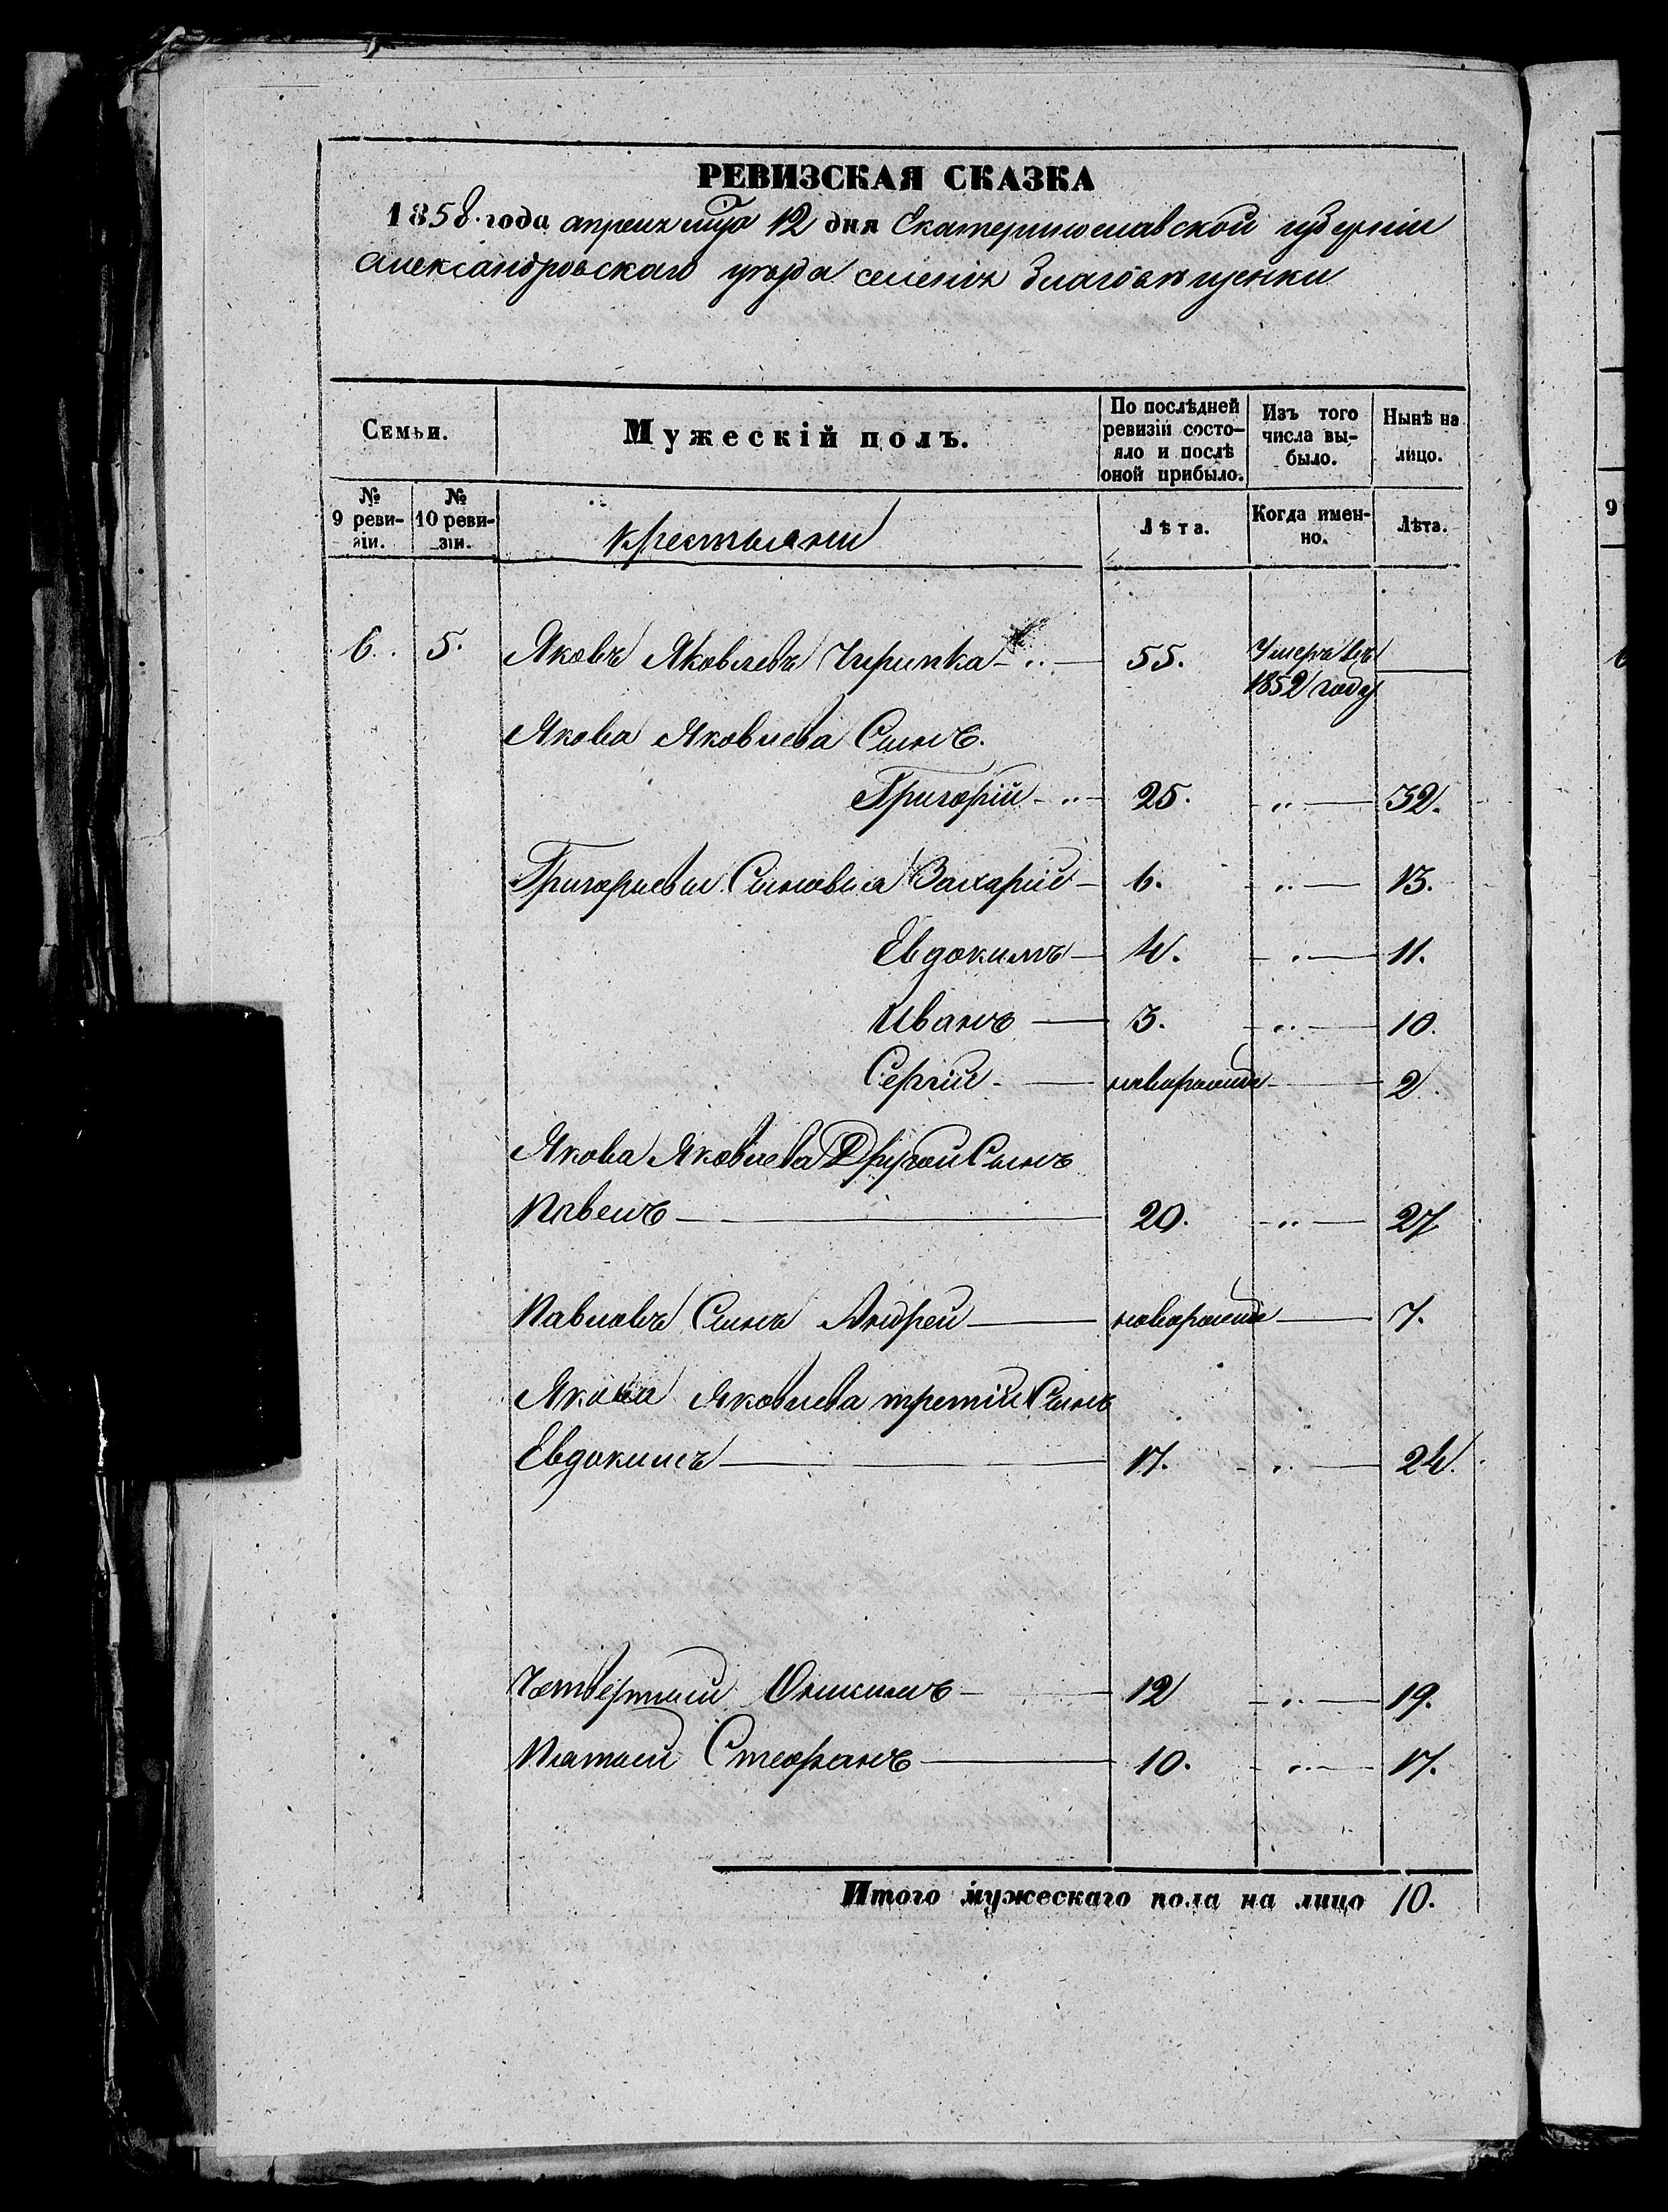 РЕВИЗСКАЯ СКАЗКА
1858 года апреля мца 12 дня Екатеринославской губерніи
Александровскаго уѣзда селенія Благовѣщенки
Семьи.
Мужескій полъ.
По послѣдней ревизіи состо-
яло и послѣ
оной прибыло.
Изъ того
числа вы-
было.
Нынѣ на
лицо.
№
9 реви-
зіи.
№
10 реви-
зіи.
крестьяни
Лѣта.
Когда имен-
но.
Лѣта.
9
6. 5. Яковъ Яковлевъ 55. Умеръ въ
1852 году
Якова Яковлева Сынъ.
Григорій 25. 32.
Григориевы Сыновья Захарій 6. 13.
Евдокимъ 4. 11.
Иванъ 3. 10.
Сергій новорожде 2.
Якова Яковлева Другой Сынъ
Павелъ 20. 27
Павловъ Сынъ Андрей новорожде 7.
Якова Яковлева третій Сынъ
Евдокимъ 17. 24.
Четвертый Онисимъ 12 19.
Пятый Стефанъ 10. 17.
Итого мужескаго пола на лицо 10.